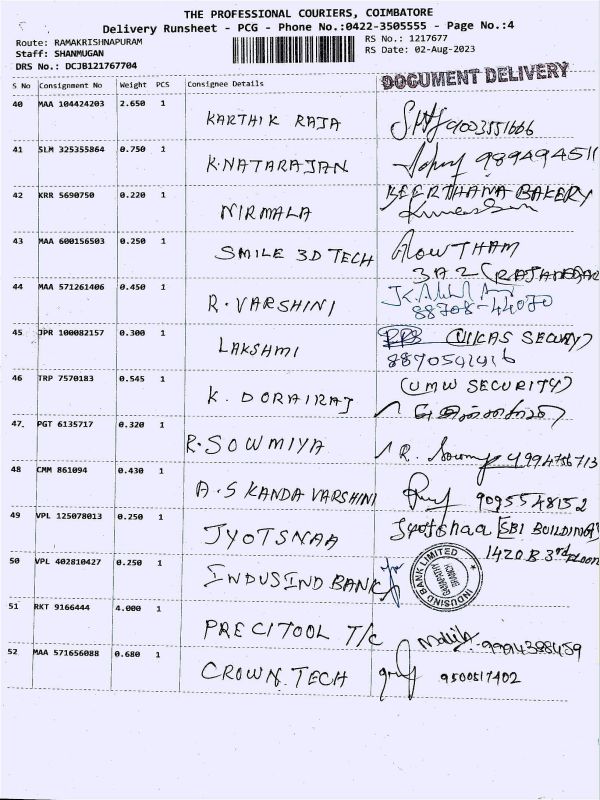 THE PROFESSIONAL COURIERS, COIMBATORE
Delivery Runsheet - PCG - Phone No.:0422-3505555 - Page No.:4
Route: RAMAKRISHNAPURAM
RS No.: 1217677
Staff: SHANMUGAN
RS Date: 02-Aug-2023
DRS No.: DCJB121767704
DOCUMENT DELIVERY
S No Consignment No Weight PCS Consignee Details
40 MAA 104424203 2.650 1 KARTHIK RAJA
41 SLM 325355864 0.750 1 K.NATARAJAN 989494511
42 KRR 5690750 0.220 1 NIRMALA KEERTHANA BAKERY
43 MAA 600156503 0.250 1 SMILE 3D TECH GOWTHAM
3A2
44 MAA 571261406 0.450 1 R.VARSHINI 88708-44070
45 JPR 100082157 0.300 1 LAKSHMI (VIKAS SECURITY)
46 TRP 7570183 0.545 1 K. DORAIRAJ (UMW SECURITY)
47. PGT 6135717 0.320 1 R.SOWMIYA R. 9994756713
48 CMM 861094 0.430 1 A.SKANDA VARSHINI 9095548152
49 VPL 125078013 0.250 1 JYOTSNAA Jyotshaa (SBI BUILDING)
1420B 3rd FLOOR
50 VPL 402810427 0.250 1 INDUSIND BANK
INDUSIND BANK LIMITED
GANAPATHY
BRANCH
51 RKT 9166444 4.000 1 PRECITOOL T/C 9994388459
52 MAA 571656088 0.680 1 CROWN TECH 9500517402